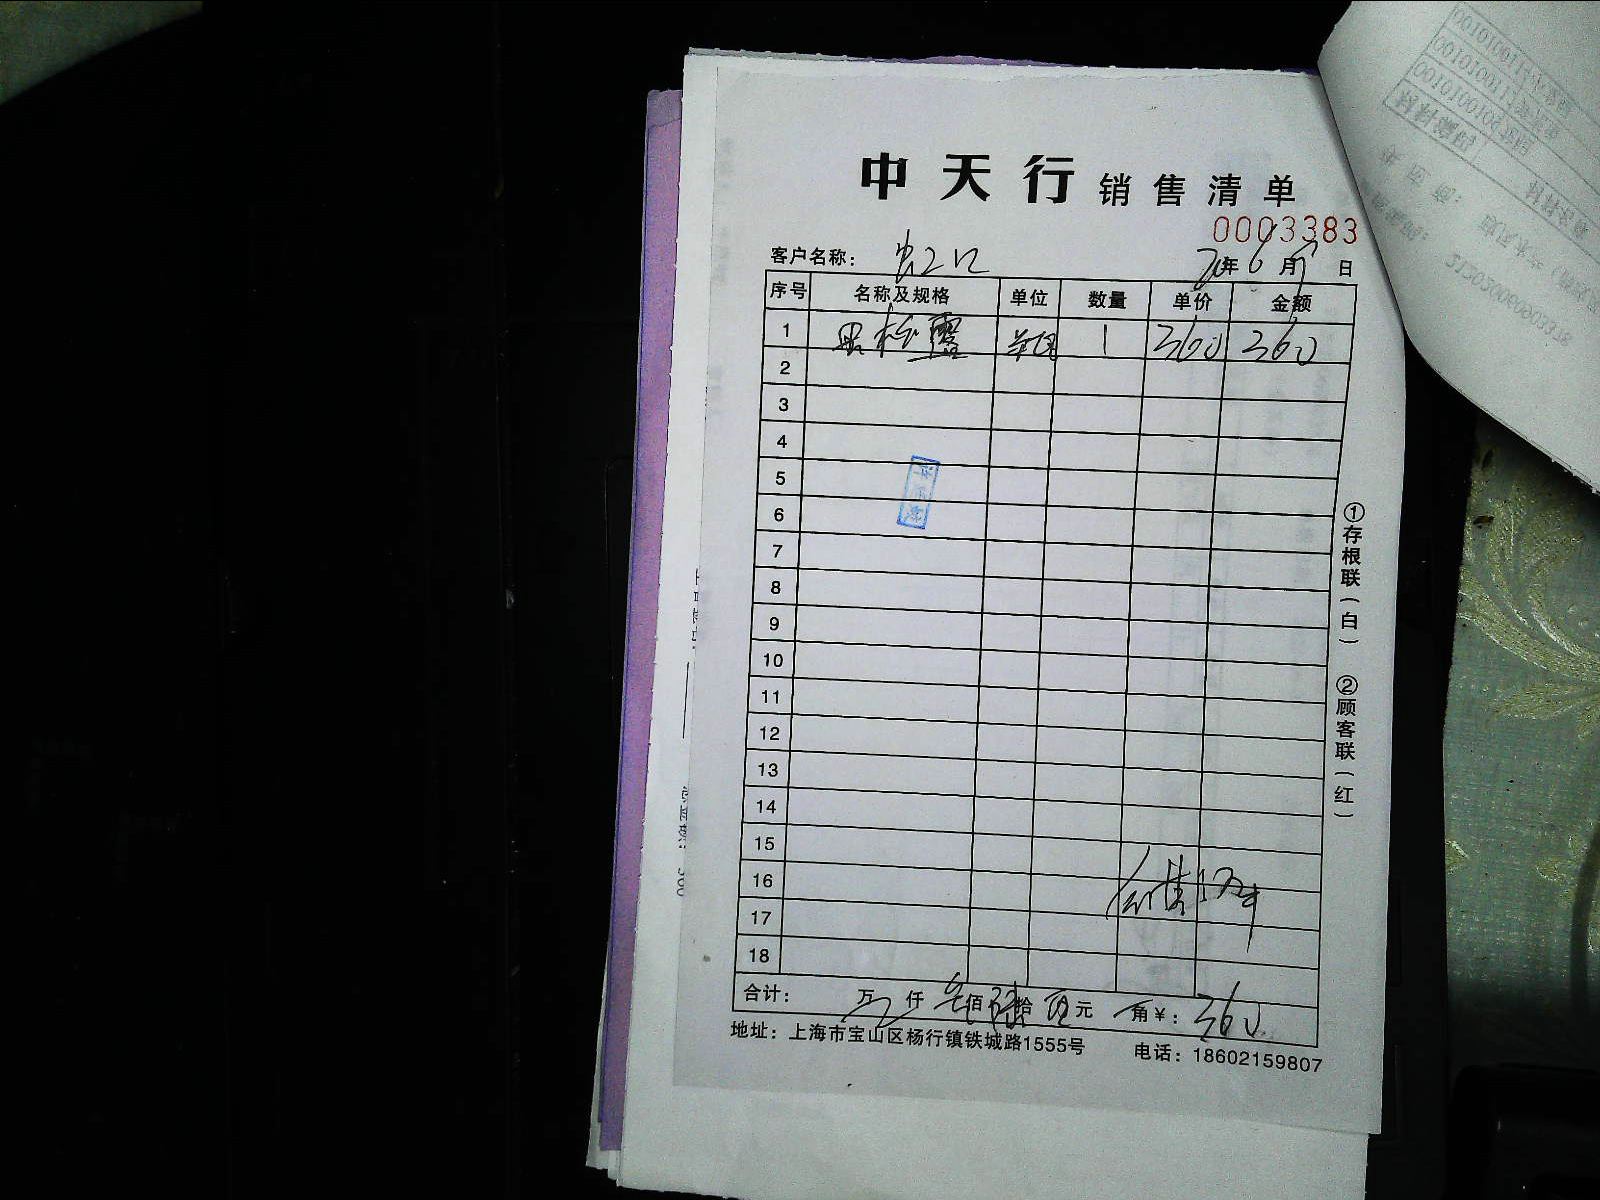 中天行 销售清单
0003383
客户名称： 虹口 年 6 月 7 日
序号 名称及规格 单位 数量 单价 金额
1 黑松露 1 360 360
2
3
4
5
6
7
8
9
10
11
12
13
14
15
16
17
18
合计： 万 仟 叁佰 陆拾 元 角 ￥： 360
地址：上海市宝山区杨行镇铁城路1555号 电话：18602159807
①存根联（白） ②顾客联（红）